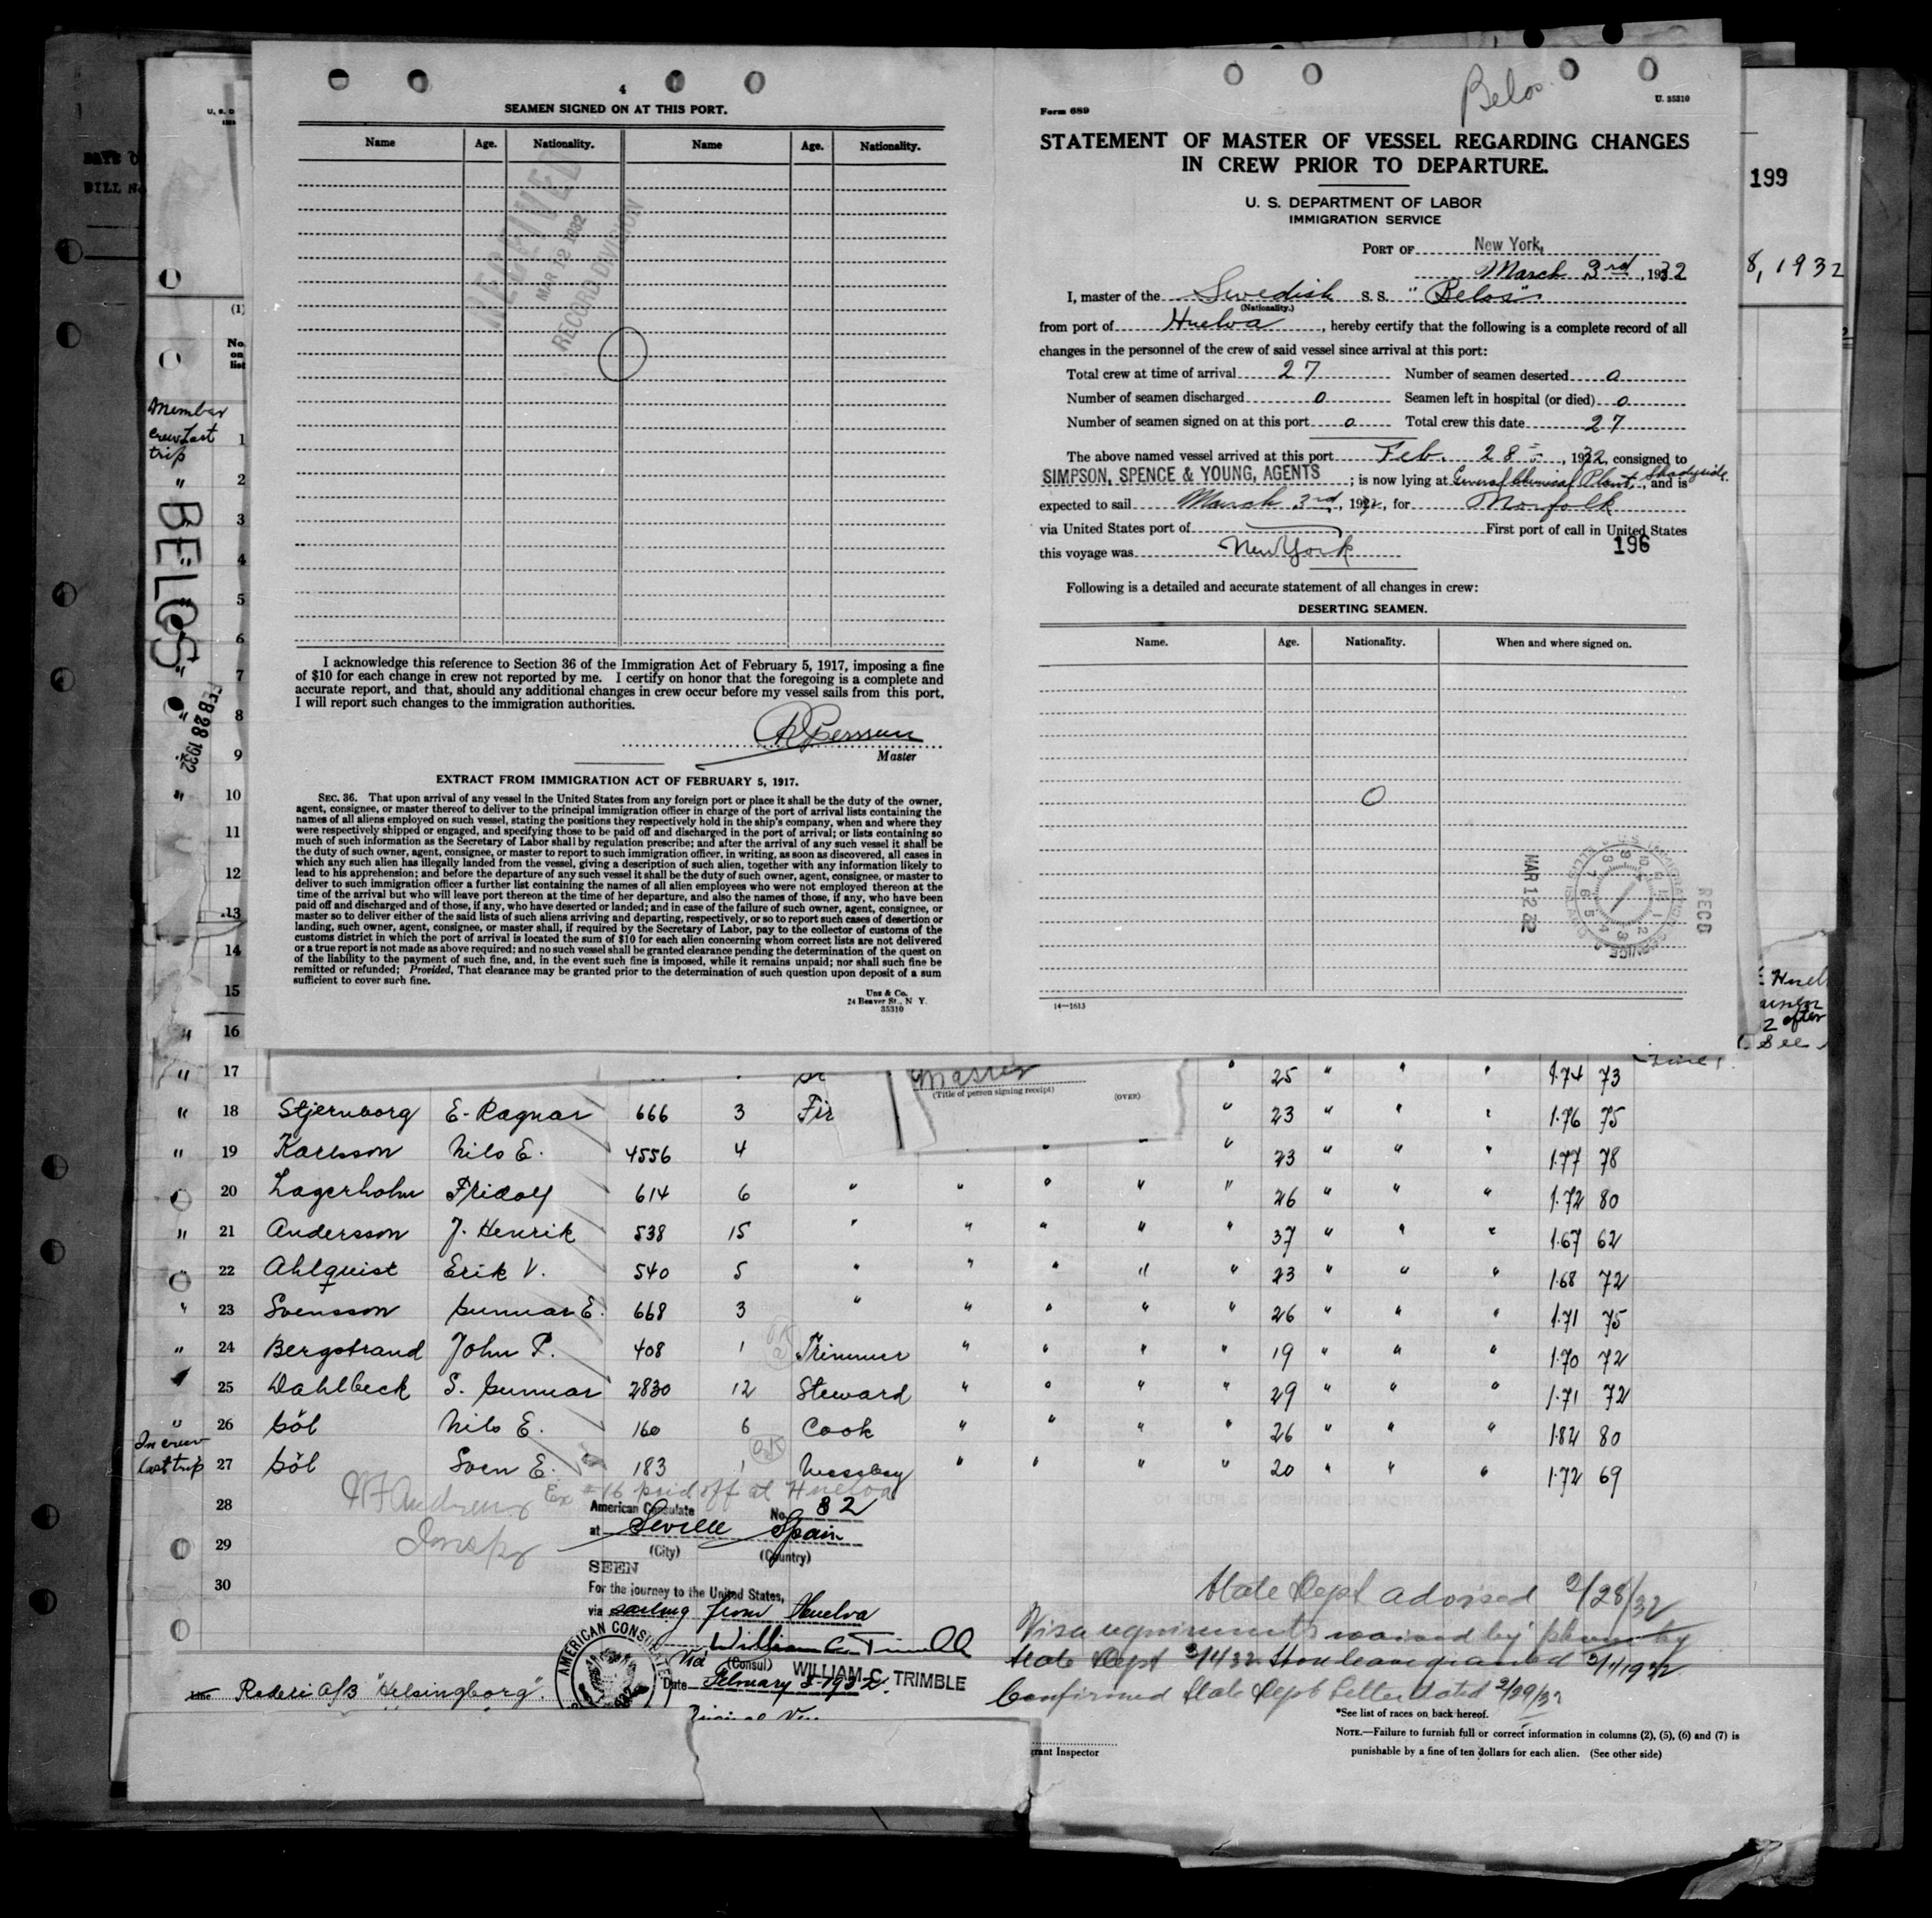 4
SEAMEN SIGNED ON AT THIS PORT.
Name Age. Nationality. Name Age. Nationality.
RECEIVED
MAR 12 1932
RECORD DIVISION
I acknowledge this reference to Section 36 of the Immigration Act of February 5, 1917, imposing a fine
of $10 for each change in crew not reported by me. I certify on honor that the foregoing is a complete and
accurate report, and that, should any additional changes in crew occur before my vessel sails from this port,
I will report such changes to the immigration authorities.
Master
EXTRACT FROM IMMIGRATION ACT OF FEBRUARY 5, 1917.
SEC. 36. That upon arrival of any vessel in the United States from any foreign port or place it shall be the duty of the owner,
agent, consignee, or master thereof to deliver to the principal immigration officer in charge of the port of arrival lists containing the
names of all aliens employed on such vessel, stating the positions they respectively hold in the ship's company, when and where they
were respectively shipped or engaged, and specifying those to be paid off and discharged in the port of arrival; or lists containing so
much of such information as the Secretary of Labor shall by regulation prescribe; and after the arrival of any such vessel it shall be
the duty of such owner, agent, consignee, or master to report to such immigration officer, in writing, as soon as discovered, all cases in
which any such alien has illegally landed from the vessel, giving a description of such alien, together with any information likely to
lead to his apprehension; and before the departure of any such vessel it shall be the duty of such owner, agent, consignee, or master to
deliver to such immigration officer a further list containing the names of all alien employees who were not employed thereon at the
time of the arrival but who will leave port thereon at the time of her departure, and also the names of those, if any, who have been
paid off and discharged and of those, if any, who have deserted or landed; and in case of the failure of such owner, agent, consignee, or
master so to deliver either of the said lists of such aliens arriving and departing, respectively, or so to report such cases of desertion or
landing, such owner, agent, consignee, or master shall, if required by the Secretary of Labor, pay to the collector of customs of the
customs district in which the port of arrival is located the sum of $10 for each alien concerning whom correct lists are not delivered
or a true report is not made as above required; and no such vessel shall be granted clearance pending the determination of the quest on
of the liability to the payment of such fine, and, in the event such fine is imposed, while it remains unpaid; nor shall such fine be
remitted or refunded; Provided, That clearance may be granted prior to the determination of such question upon deposit of a sum
sufficient to cover such fine.
Unz & Co.
24 Beaver St., N Y.
35310
Belos
Form 689 U. 35310
STATEMENT OF MASTER OF VESSEL REGARDING CHANGES
IN CREW PRIOR TO DEPARTURE.
U. S. DEPARTMENT OF LABOR
IMMIGRATION SERVICE
PORT OF New York,
March 3rd, 1932
I, master of the Swedish S. S. "Belos"
(Nationality.)
from port of Huelva, hereby certify that the following is a complete record of all
changes in the personnel of the crew of said vessel since arrival at this port:
Total crew at time of arrival 27 Number of seamen deserted 0
Number of seamen discharged 0 Seamen left in hospital (or died) 0
Number of seamen signed on at this port 0 Total crew this date 27
The above named vessel arrived at this port Feb. 28, 1932, consigned to
SIMPSON, SPENCE & YOUNG, AGENTS; is now lying at General Chemical Plant, Shadyside, and is
expected to sail March 3rd, 1932, for Norfolk
via United States port of First port of call in United States
this voyage was New York 196
Following is a detailed and accurate statement of all changes in crew:
DESERTING SEAMEN.
Name. Age. Nationality. When and where signed on.
0
MAR 12 32
RECD
14—1613
199
8, 1932
(1)
No. on list
Member crew last trip 1
" 2
3
4
5
6
7
8
9
" 10
11
12
13
14
15
" 16
BELOS
FEB 28 1932
" 17 " 25 " " " 1.74 73
Master
(Title of person signing receipt)
(OVER)
" 18 Stjernborg E. Ragnar 666 3 Fir " 23 " " " 1.76 75
" 19 Karlsson Nils E. 4556 4 " " " 23 " " " 1.77 78
20 Lagerholm Fridolf 614 6 " " " " " 26 " " " 1.72 80
" 21 Andersson J. Henrik 538 15 " " " " " 37 " " " 1.67 62
" 22 Ahlquist Erik V. 540 5 " " " " " 23 " " " 1.68 72
" 23 Svensson Gunnar E. 668 3 " " " " " 26 " " " 1.71 75
" 24 Bergstrand John P. 408 1 Trimmer " " " " 19 " " " 1.70 72
25 Dahlbeck S. Gunnar 2830 12 Steward " " " " 29 " " " 1.71 72
" 26 Göl Nils E. 160 6 Cook " " " " 26 " " " 1.82 80
In crew last trip 27 Göl Sven E. 183 1 Messboy " " " " 20 " " " 1.72 69
Ex #16 paid off at Huelva
28
29
30
American Consulate No. 82
at Seville Spain
(City) (Country)
SEEN
For the journey to the United States,
via sailing from Huelva
William C. Trimble
(Consul) WILLIAM C. TRIMBLE
Date February 5-1932.
AMERICAN CONSULATE
State Dept advised 2/28/32
Visa requirements waived by phone by
State Dept
Confirmed State Dept Letter dated 2/29/32
Rederi A/B "Helsingborg".
*See list of races on back hereof.
NOTE.—Failure to furnish full or correct information in columns (2), (5), (6) and (7) is
punishable by a fine of ten dollars for each alien. (See other side)
grant Inspector